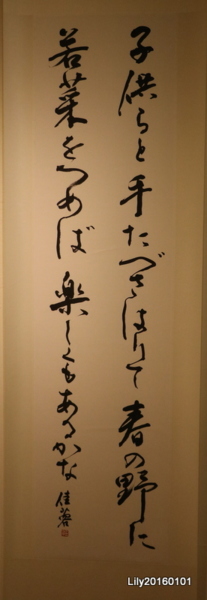 子供らと手たづさはりて春の野に
若菜をつめば楽しくもあるかな
佳蓉
Lily20160101